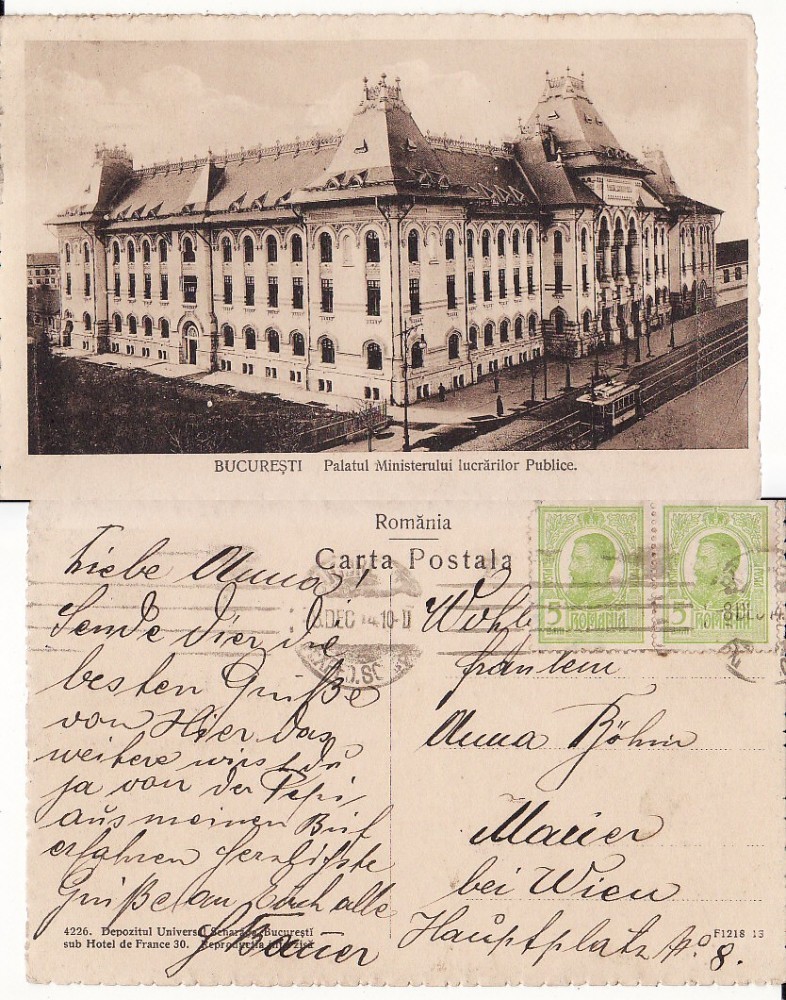 BUCUREȘTI Palatul Ministerului lucrărilor Publice.
România
Carta Postala
Liebe Anna!
Sende Dier die
besten Grüße
von Hier Das
weitere wirst du
ja von der Pepi
aus meinen Brif
erfahren herzlichste
Grüße an Euch alle
DEC 14.10-11
Wohlb
fräulein
Anna Böhm
Mauer
bei Wien
Hauptplatz No 8.
5 ROMANIA 5 ROMANIA
8 DEC
4226. Depozitul Universal Scharaga, Bucureștĭ
sub Hotel de France 30. Reproducția interzisă
F1218 13